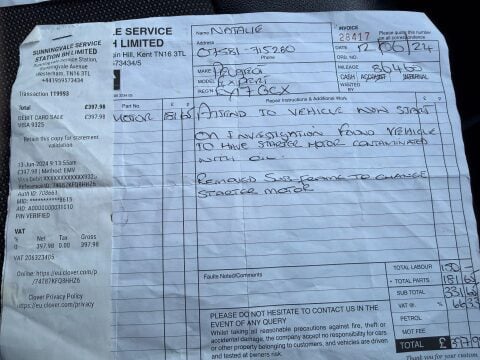 SUNNINGVALE SERVICE
STATION BH LIMITED
Sunningvale Service Station,
Sunningvale Avenue
Westerham, TN16 3TL
+441959573434
Transaction 119993
Total £397.98
DEBIT CARD SALE £397.98
VISA 9325
Retain this copy for statement
validation
13-Jun-2024 9:13:55am
£397.98 | Method: EMV
PIN VERIFIED
VAT
% Net Tax Gross
0 397.98 0.00 397.98
VAT 206323405
Online: https://eu.clover.com/p
/74Z87KFQ8HHZ6
Clover Privacy Policy
https://eu.clover.com/privacy
ALE SERVICE
BH LIMITED
Hill, Kent TN16 3TL
573434/5
Part No. £ p
MOTOR 181 65
NAME NATALIE
ADDRESS 07581-715260
MAKE PEUGEOT
MODEL EXPERT
REG'N
INVOICE
28417
Please quote this number on
all correspondence
DATE 12/06/24
ORD. NO.
MILEAGE 86460
CASH ACCOUNT INTERNAL
WANTED
BY
Repair Instructions & Additional Work £ p
ATTEND TO VEHICLE NON START
ON INVESTIGATION FOUND VEHICLE
TO HAVE STARTER MOTOR CONTAMINATED
WITH OIL.
REMOVED SUB FRAME TO CHANGE
STARTER MOTOR
Faults Noted/Comments
TOTAL LABOUR 150
TOTAL PARTS 181 65
SUB TOTAL 331 65
VAT @ % 66 33
PETROL
MOT FEE
TOTAL £ 397.98
PLEASE DO NOT HESITATE TO CONTACT US IN THE
EVENT OF ANY QUERY
Whilst taking all reasonable precautions against fire, theft or
accidental damage, the company accept no responsibility for cars
or other property belonging to customers, and vehicles are driven
and tested at owners risk.
Thank you for your custom